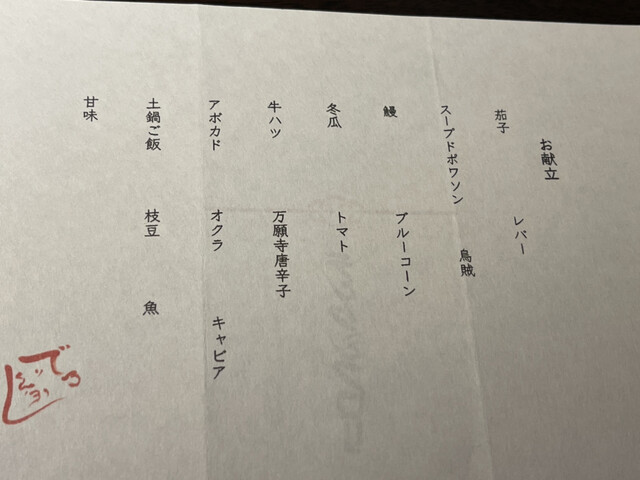 お献立
茄子 レバー
スープドポワソン 烏賊
鰻 ブルーコーン
冬瓜 トマト
牛ハツ 万願寺唐辛子
アボカド オクラ キャビア
土鍋ご飯 枝豆 魚
甘味